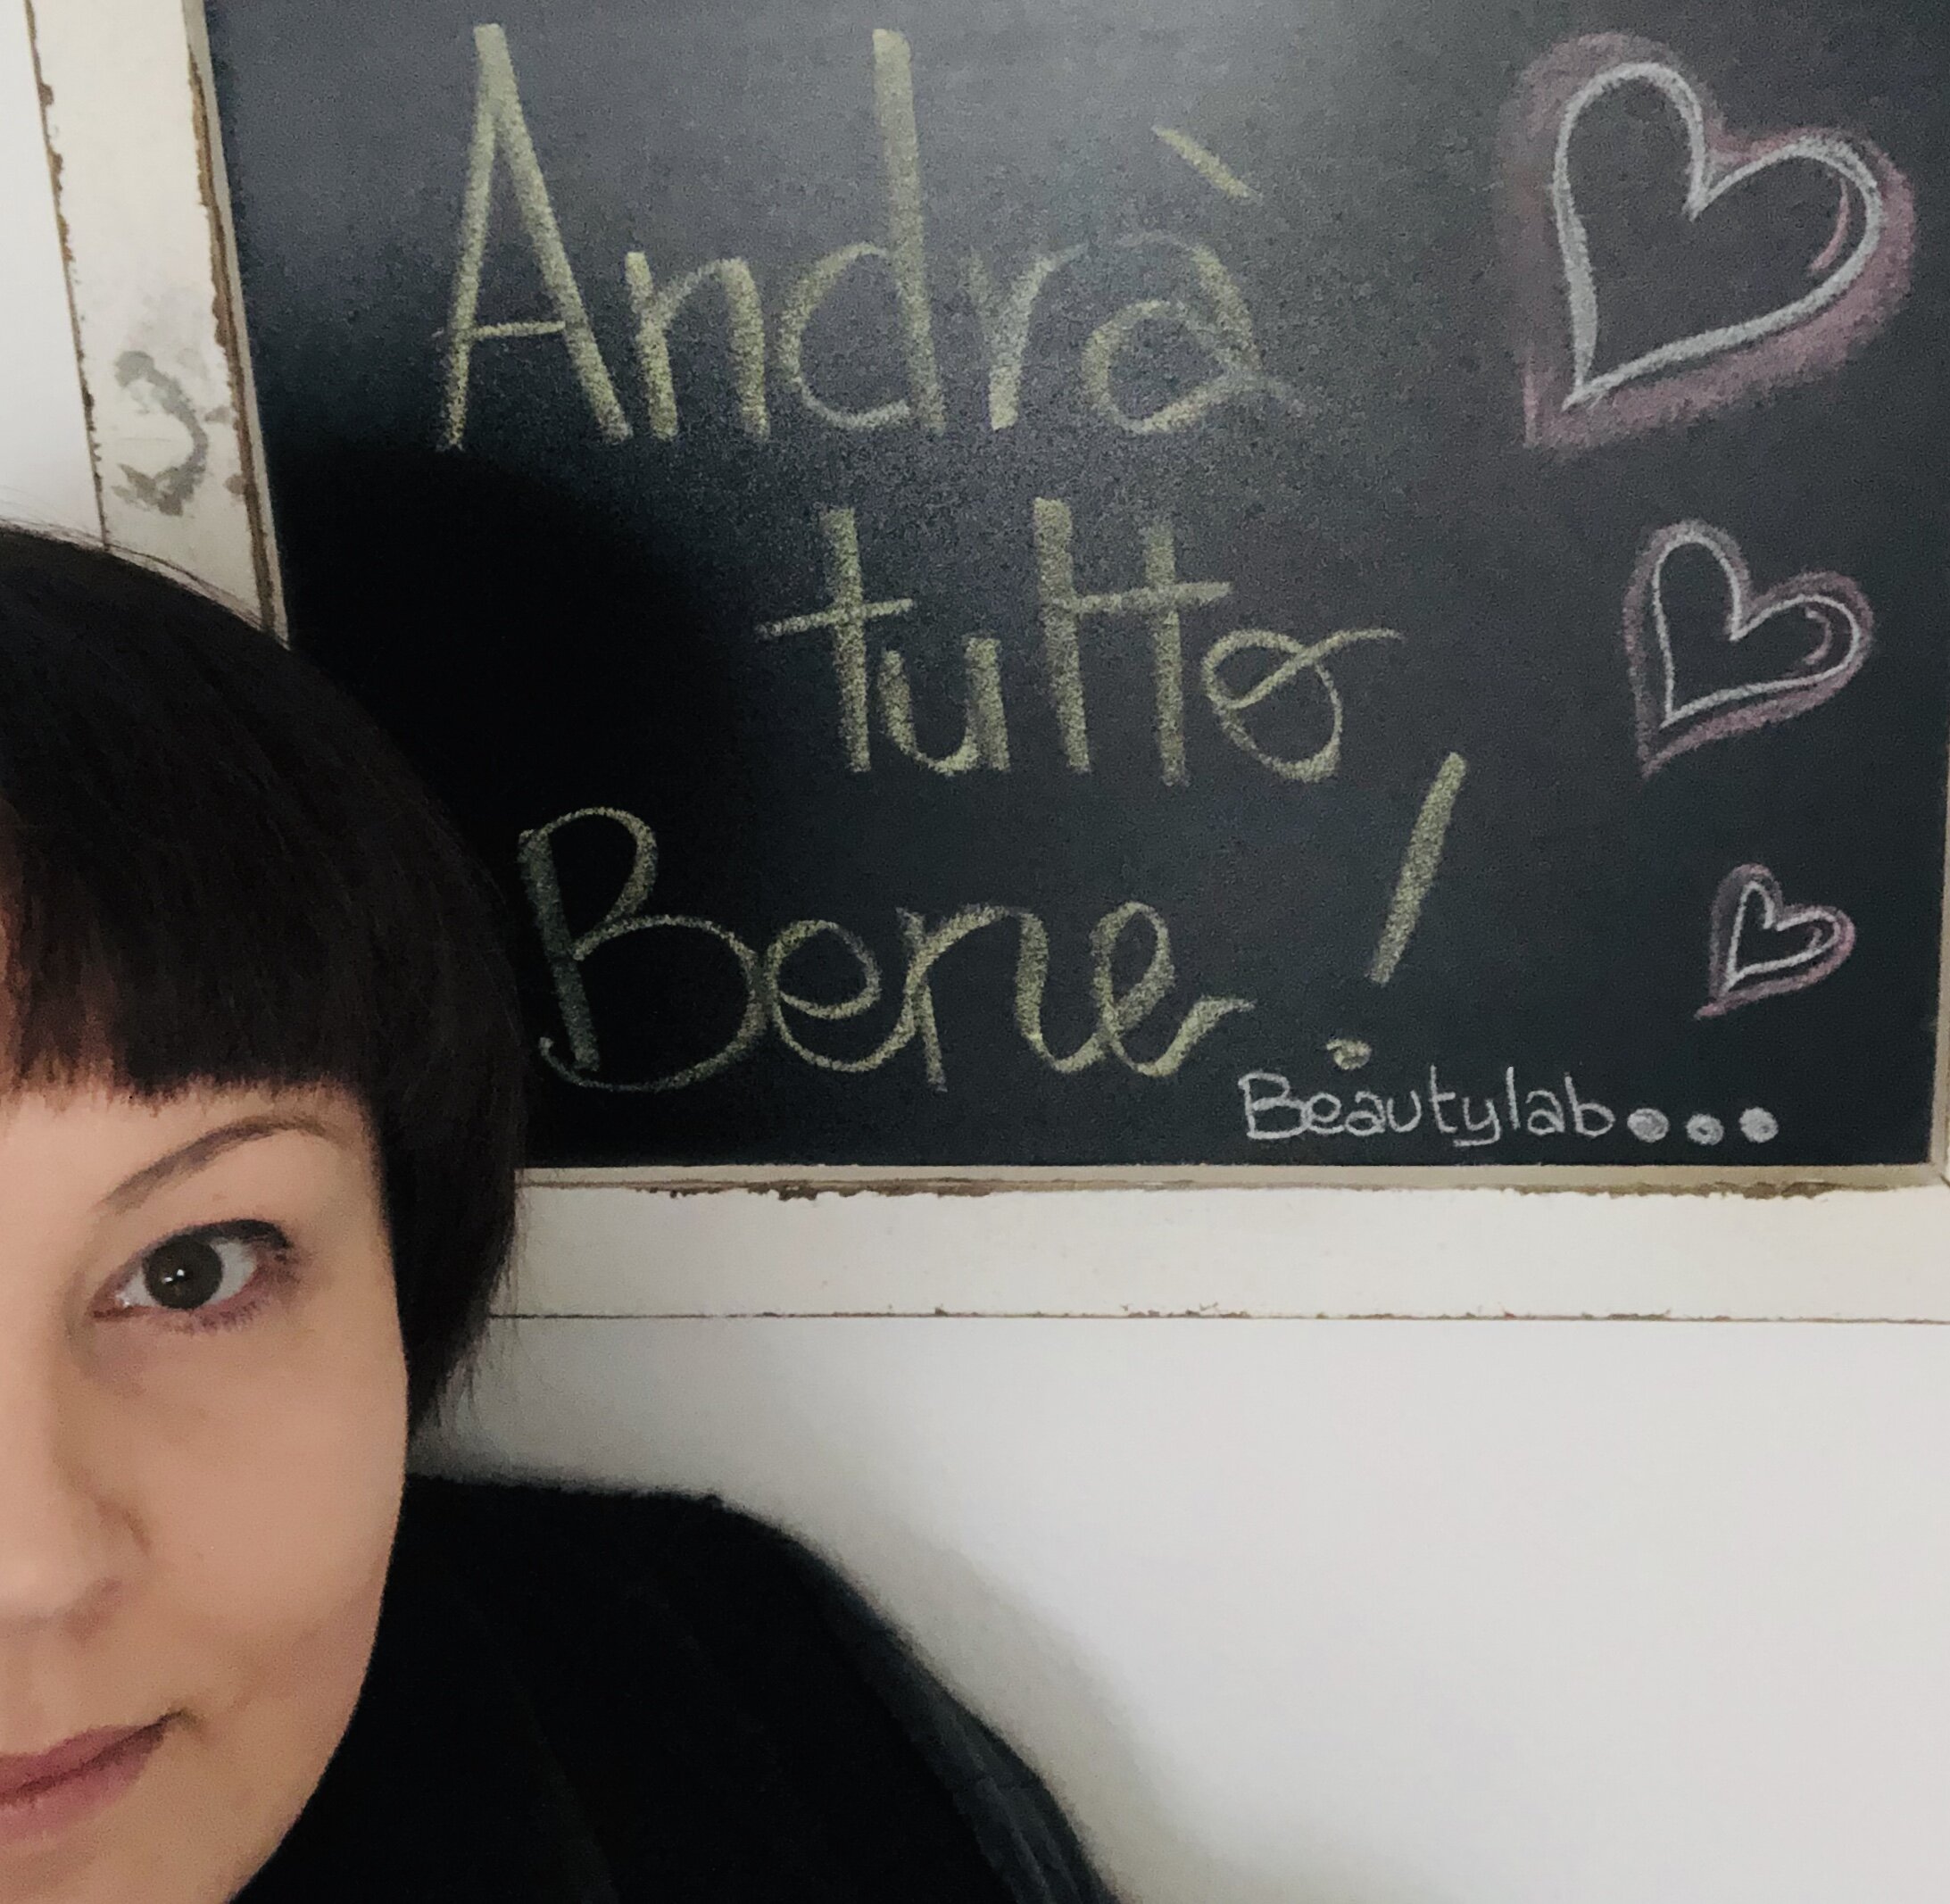 Andrà
tutto
Bene!
Beautylab...